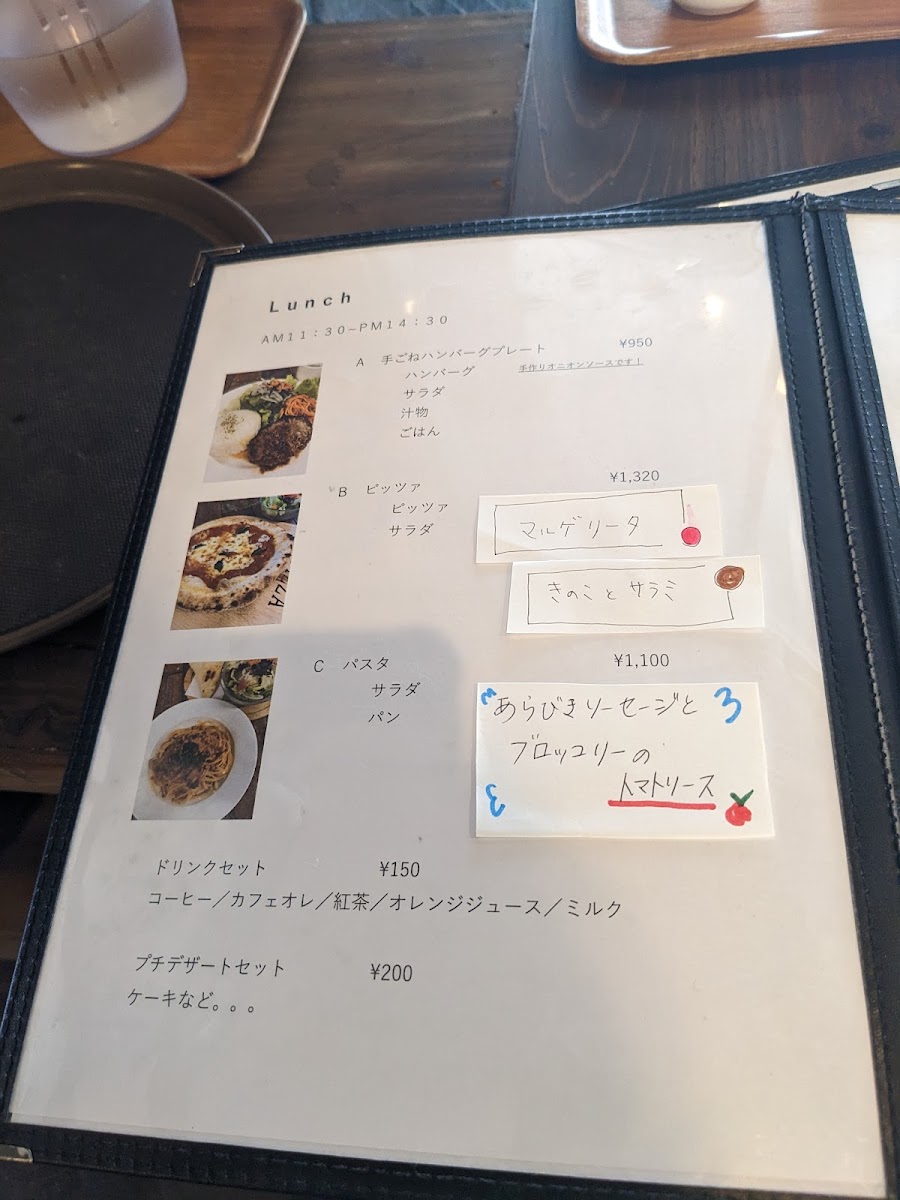 Lunch
AM11：30~PM14：30
A 手ごねハンバーグプレート ¥950
ハンバーグ 手作りオニオンソースです！
サラダ
汁物
ごはん
B ピッツァ ¥1,320
ピッツァ
サラダ
マルゲリータ
きのことサラミ
C パスタ ¥1,100
サラダ
パン
あらびきソーセージと
ブロッコリーの
トマトソース
ドリンクセット ¥150
コーヒー／カフェオレ／紅茶／オレンジジュース／ミルク
プチデザートセット ¥200
ケーキなど。。。